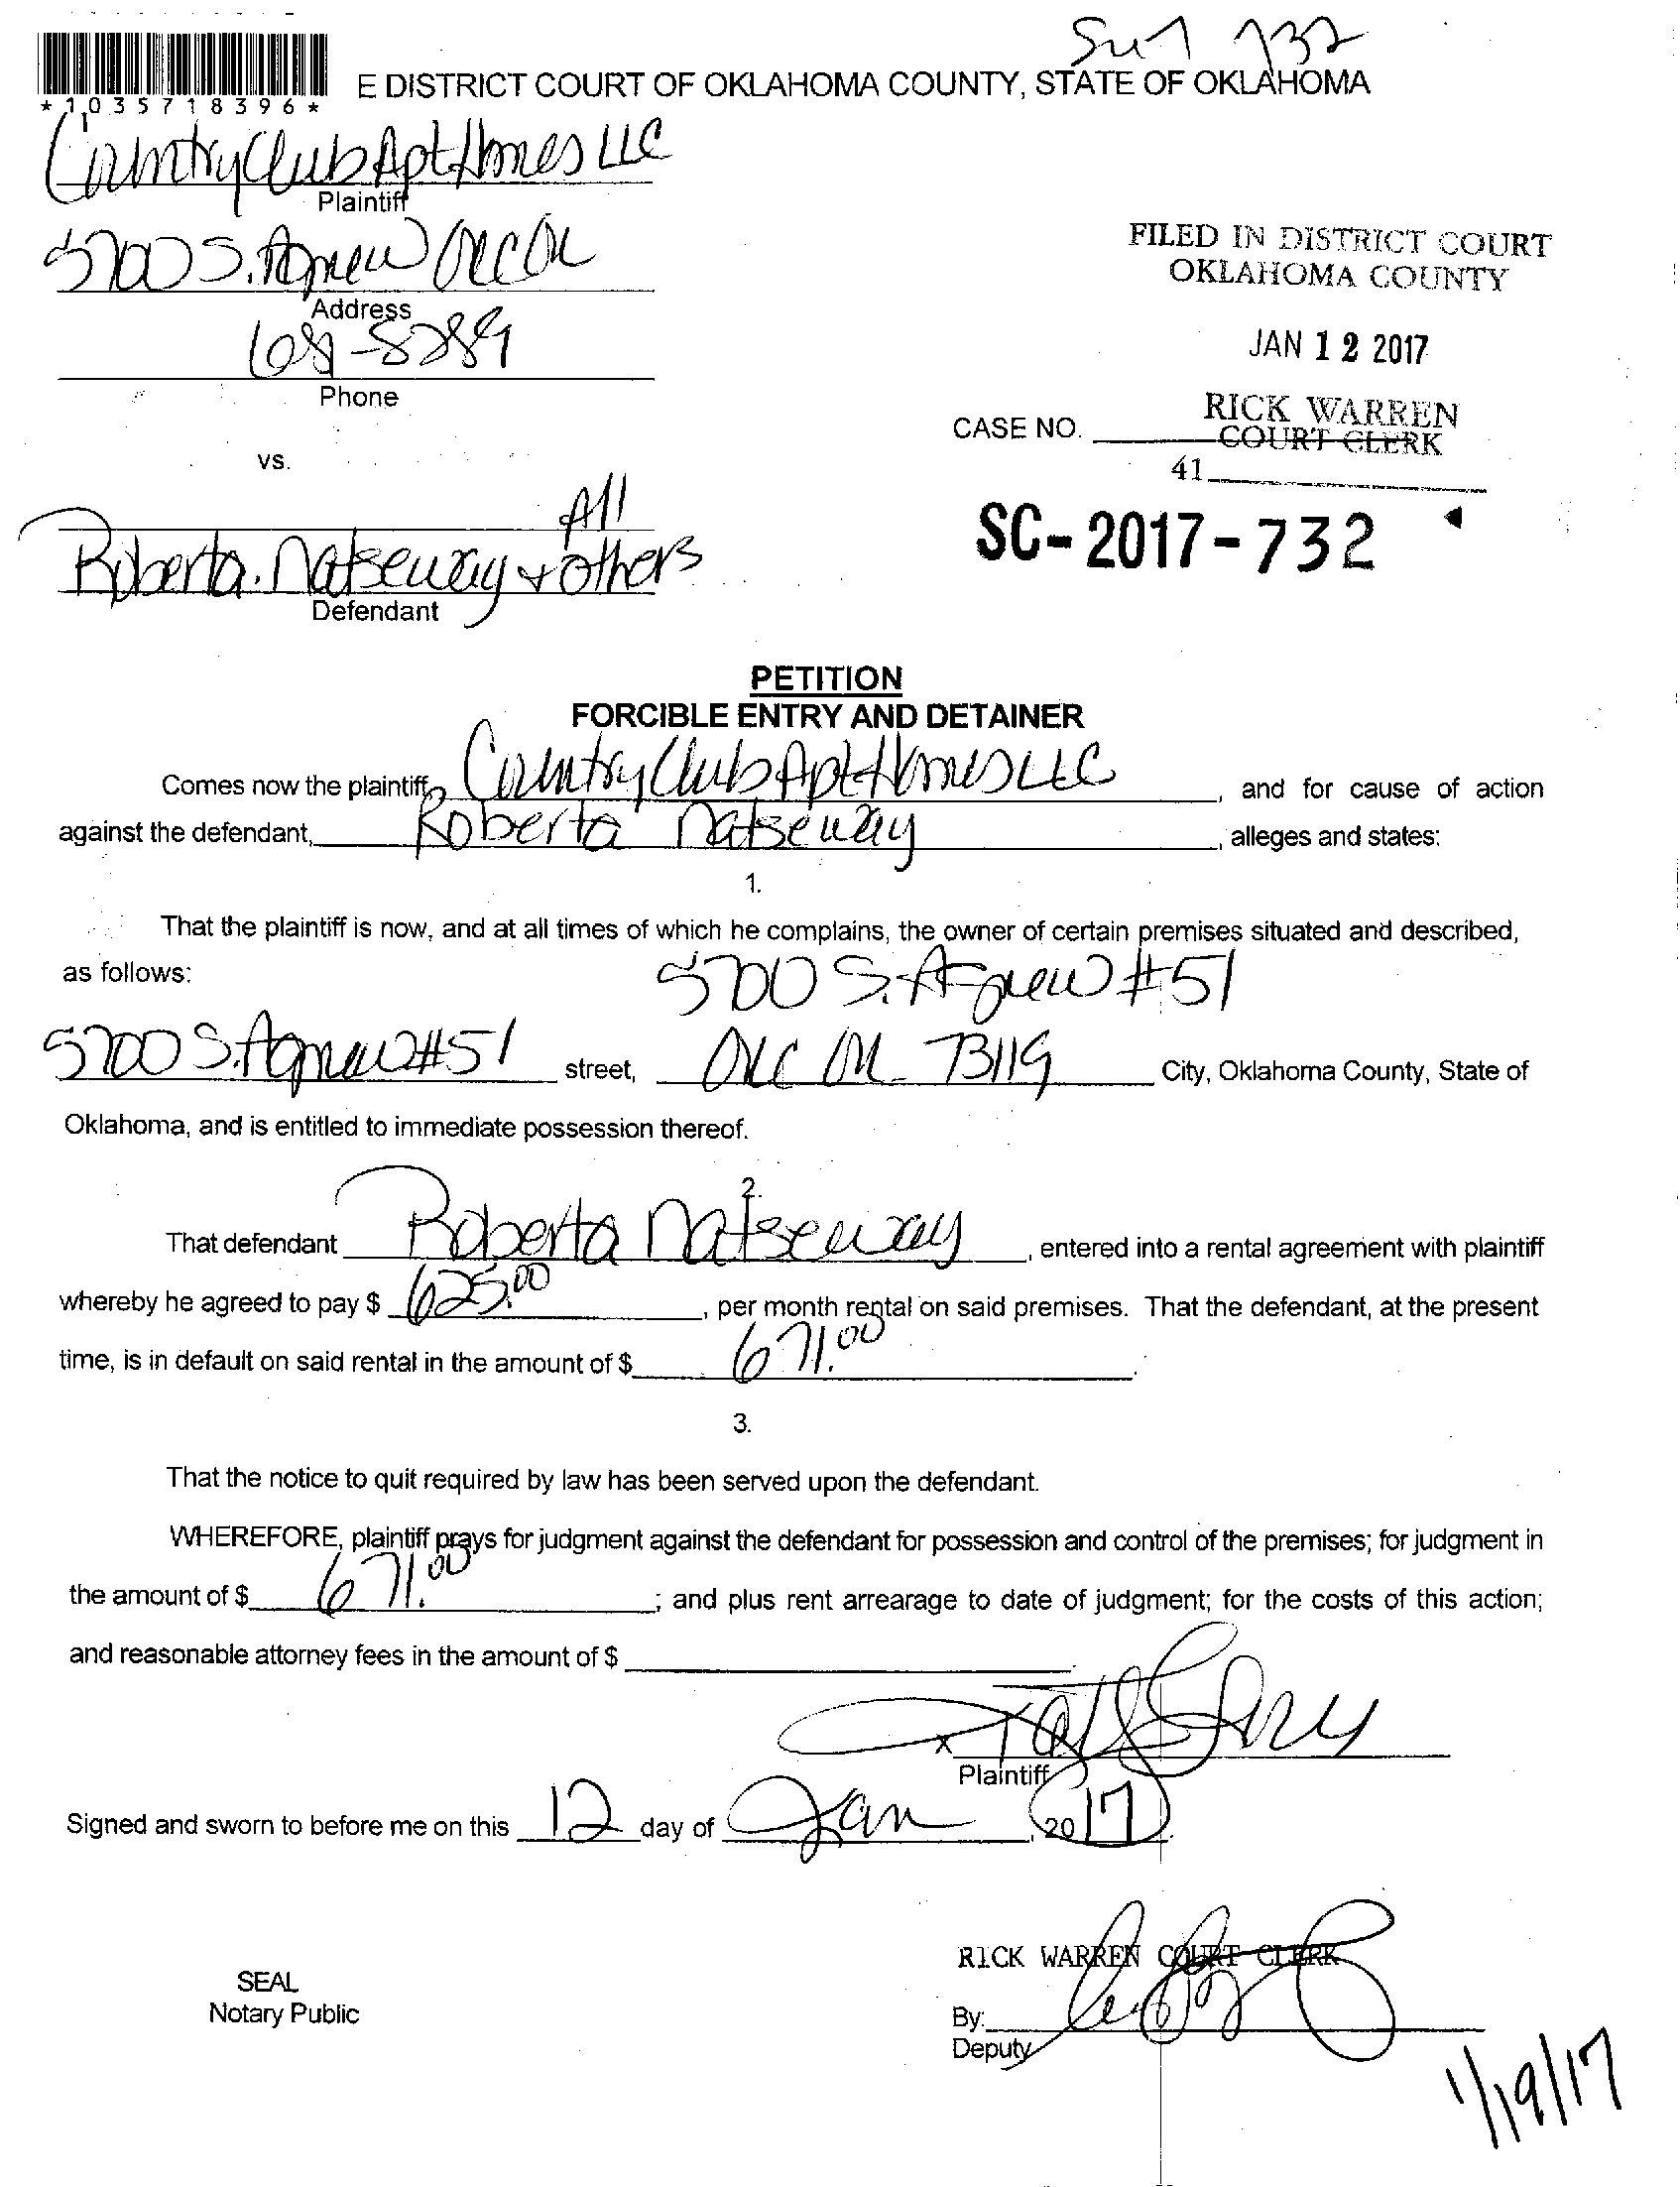 E DISTRICT COURT OF OKLAHOMA COUNTY, STATE OF OKLAHOMA
*1035718396*
Country Club Apt Homes LLC
Plaintiff
5700 S. Agnew OKC OK
Address
FILED IN DISTRICT COURT
OKLAHOMA COUNTY
JAN 12 2017
RICK WARREN
COURT CLERK
41
Phone
CASE NO.
SC-2017-732
vs.
All
Roberta Natseway + others
Defendant
PETITION
FORCIBLE ENTRY AND DETAINER
Comes now the plaintiff, Country Club Apt Homes LLC, and for cause of action
against the defendant, Roberta Natseway, alleges and states:
1.
That the plaintiff is now, and at all times of which he complains, the owner of certain premises situated and described,
as follows: 5700 S. Agnew #51
5700 S. Agnew #51 street, OKC OK 73119 City, Oklahoma County, State of
Oklahoma, and is entitled to immediate possession thereof.
2.
That defendant Roberta Natseway, entered into a rental agreement with plaintiff
whereby he agreed to pay $ 625.00, per month rental on said premises. That the defendant, at the present
time, is in default on said rental in the amount of $ 671.00.
3.
That the notice to quit required by law has been served upon the defendant.
WHEREFORE, plaintiff prays for judgment against the defendant for possession and control of the premises; for judgment in
the amount of $ 671.00; and plus rent arrearage to date of judgment; for the costs of this action;
and reasonable attorney fees in the amount of $
x
Plaintiff
Signed and sworn to before me on this 12 day of Jan, 2017.
RICK WARREN COURT CLERK
SEAL
Notary Public
By:
Deputy
1/19/17